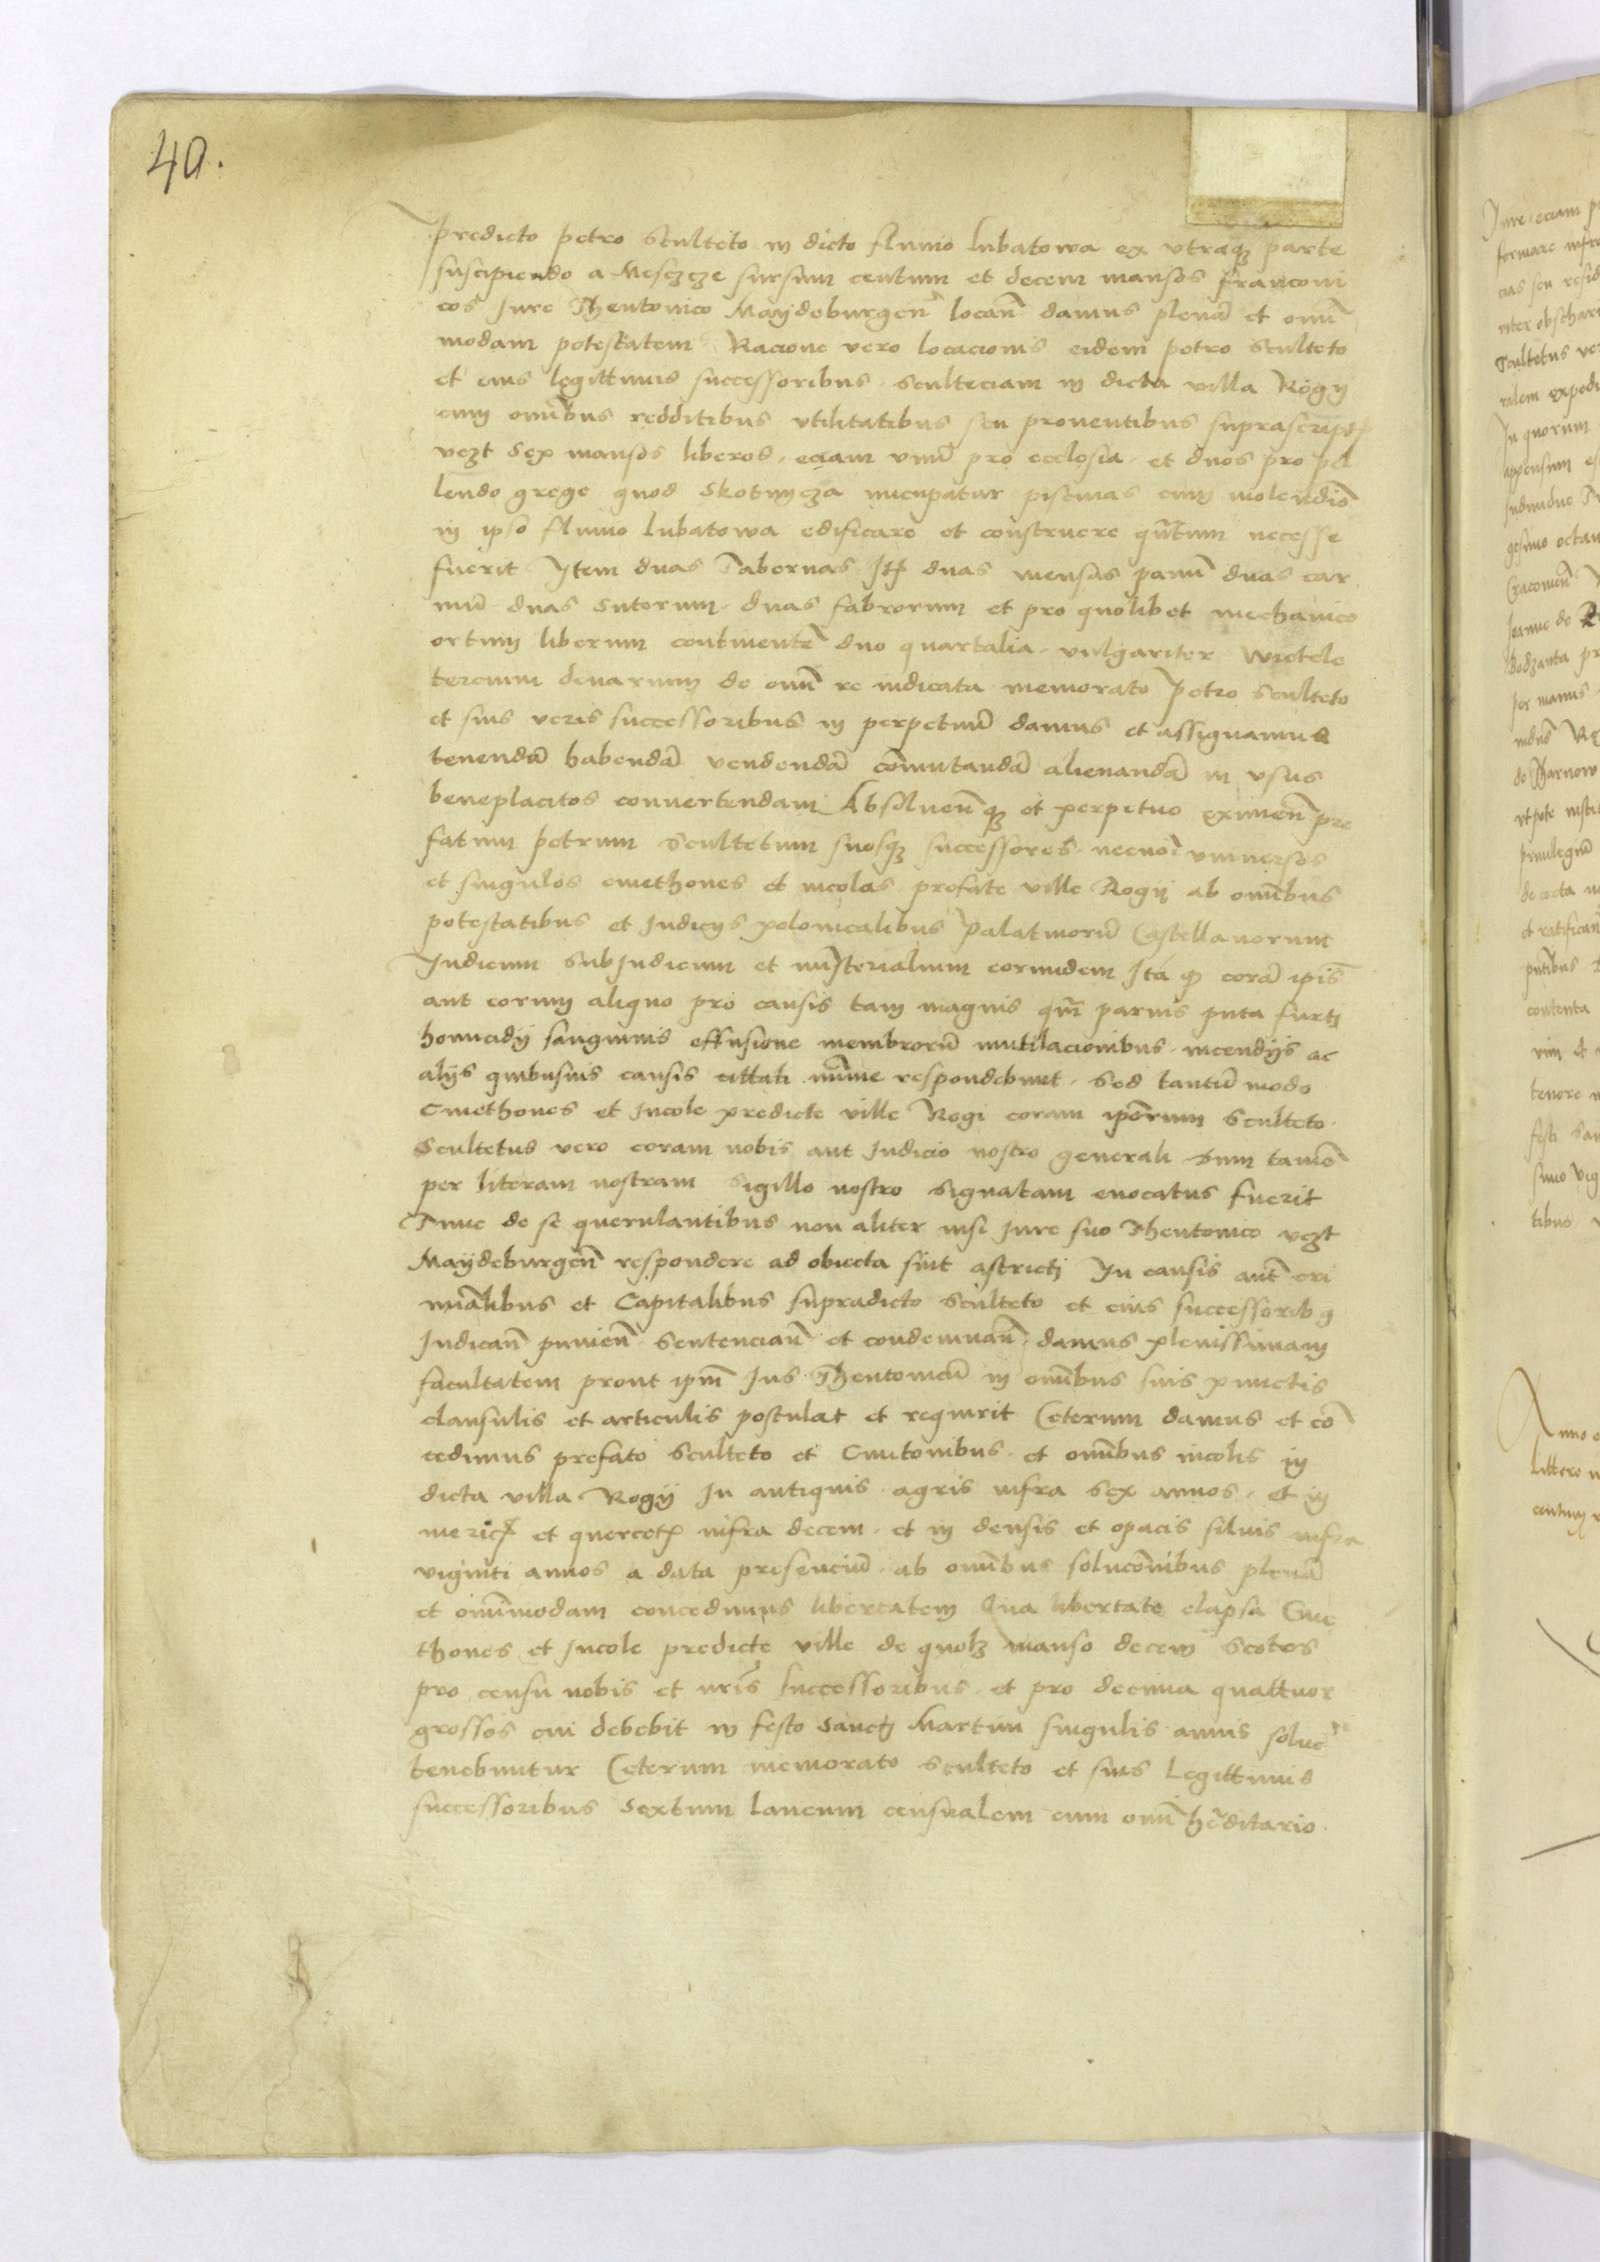 40.
predicto petro Sculteto in dicto fluuio lubatowa ex vtraqȝ parte
suscipiendo a Mesczcze sursum centum et decem mansos franconi
cos Jure Thentonico Maydeburgen̄ locan̄ damus plenā et omn̄
modam potestatem Racione vero locacionis eidem petro Sculteto
et eius legittimis successoribus sculteciam in dicta villa Rogy
cum om̄ibus redditibus vtilitatibus seu prouentibus suprascript
veȝt Sex mansos liberos eciam vnū pro ecclesia et duos pro pel
lendo grege quod Skotnycza nucupatur piscinas cum molendis̄
in ip̄o fluuio lubatowa edificare et construere qn̄tum necesse
fuerit Item duas Tabernas It duas mensas panū duas car
niū duas Sutorum duas fabrorum et pro quolibet mechanico
ortum liberum continentē duo quartalia vulgariter wretele
tercium denarium de omn̄ re iudicata memorato Petro Sculteto
et suis veris successoribus in perpetuū damus et assignamus
tenendā habendā vendendā com̄utandā alienandā in vsus
beneplacitos conuertendam Absoluen̄ qȝ et perpetuo eximen̄ pre
fatum petrum Scultetum suosqȝ successores necno vniuersos
et singulos cmethones et incolas prefate ville Rogy ab om̄ibus
potestatibus et Judicys polonicalibus Palatinorū Castellanorum
Judicum SubJudicum et ministerialium eorundem Ita qd corā ip̄is
aut eorum aliquo pro causis tam magnis qm̄ paruis puta furti
homicidy sanguinis effusione membrorū mutilacionibus incendys ac
alys quibusuis causis cittati minime respondebunt Sed tantū modo
Cmethones et Jncole predicte ville Rogi coram ip̄orum Sculteto
Scultetus vero coram nobis aut Judicio nostro generali Dum tamē
per literam nostram Sigillo nostro Signatam euocatus fuerit
Tunc de se querulantibus non aliter nisi Jure suo Thentonico veȝt
Maydeburgen̄ respondere ad obiecta sint astricti In causis aut̄ cri
minalibus et Capitalibus supradicto Sculteto et eius successoribꝰ
Judican̄ punien̄ Sentencian̄ et condemnan̄ damus plenissimam
facultatem prout ip̄m Jus Thentonicū in om̄ibus suis punctis
clausulis et articulis postulat et requirit Ceterum damus et cō
cedimus prefato Sculteto et Cmitonibus et om̄ibus incolis in
dicta villa Rogy Jn antiquis agris infra Sex annos et in
meric et quercet infra decem et in densis et opacis siluis infra
viginti annos a data presenciū ab om̄ibus solucōnibus plenā
et om̄imodam concedimus libertatem Qua libertate elapsa Cme
thones et Jncole predicte ville de quolȝ manso decem Scotos
pro censu nobis et nr̄is successoribus et pro decima quattuor
grossos cui debebit in festo Sancti Martini singulis annis solue
tenebuntur Ceterum memorato Sculteto et suis Legittimis
successoribus Sextum laneum censualem cum omn̄ hēditario